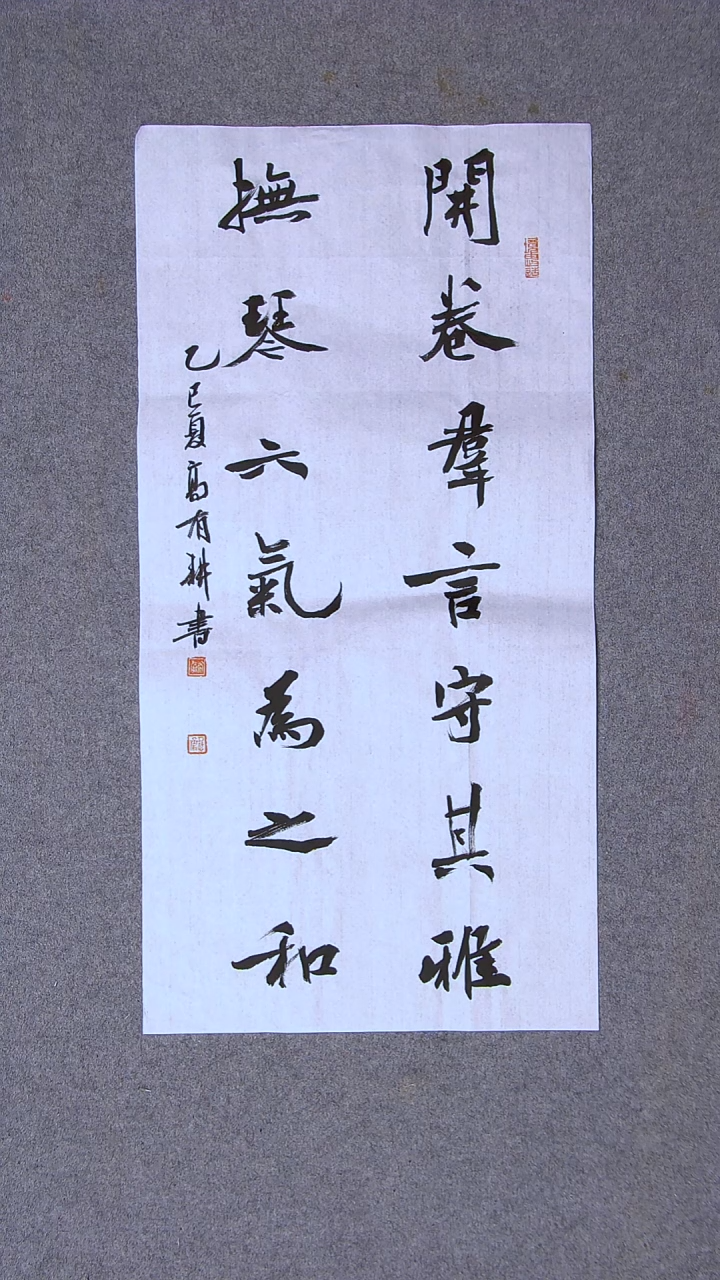 開卷羣言守其雅
撫琴六氣為之和
乙巳夏高有耕書